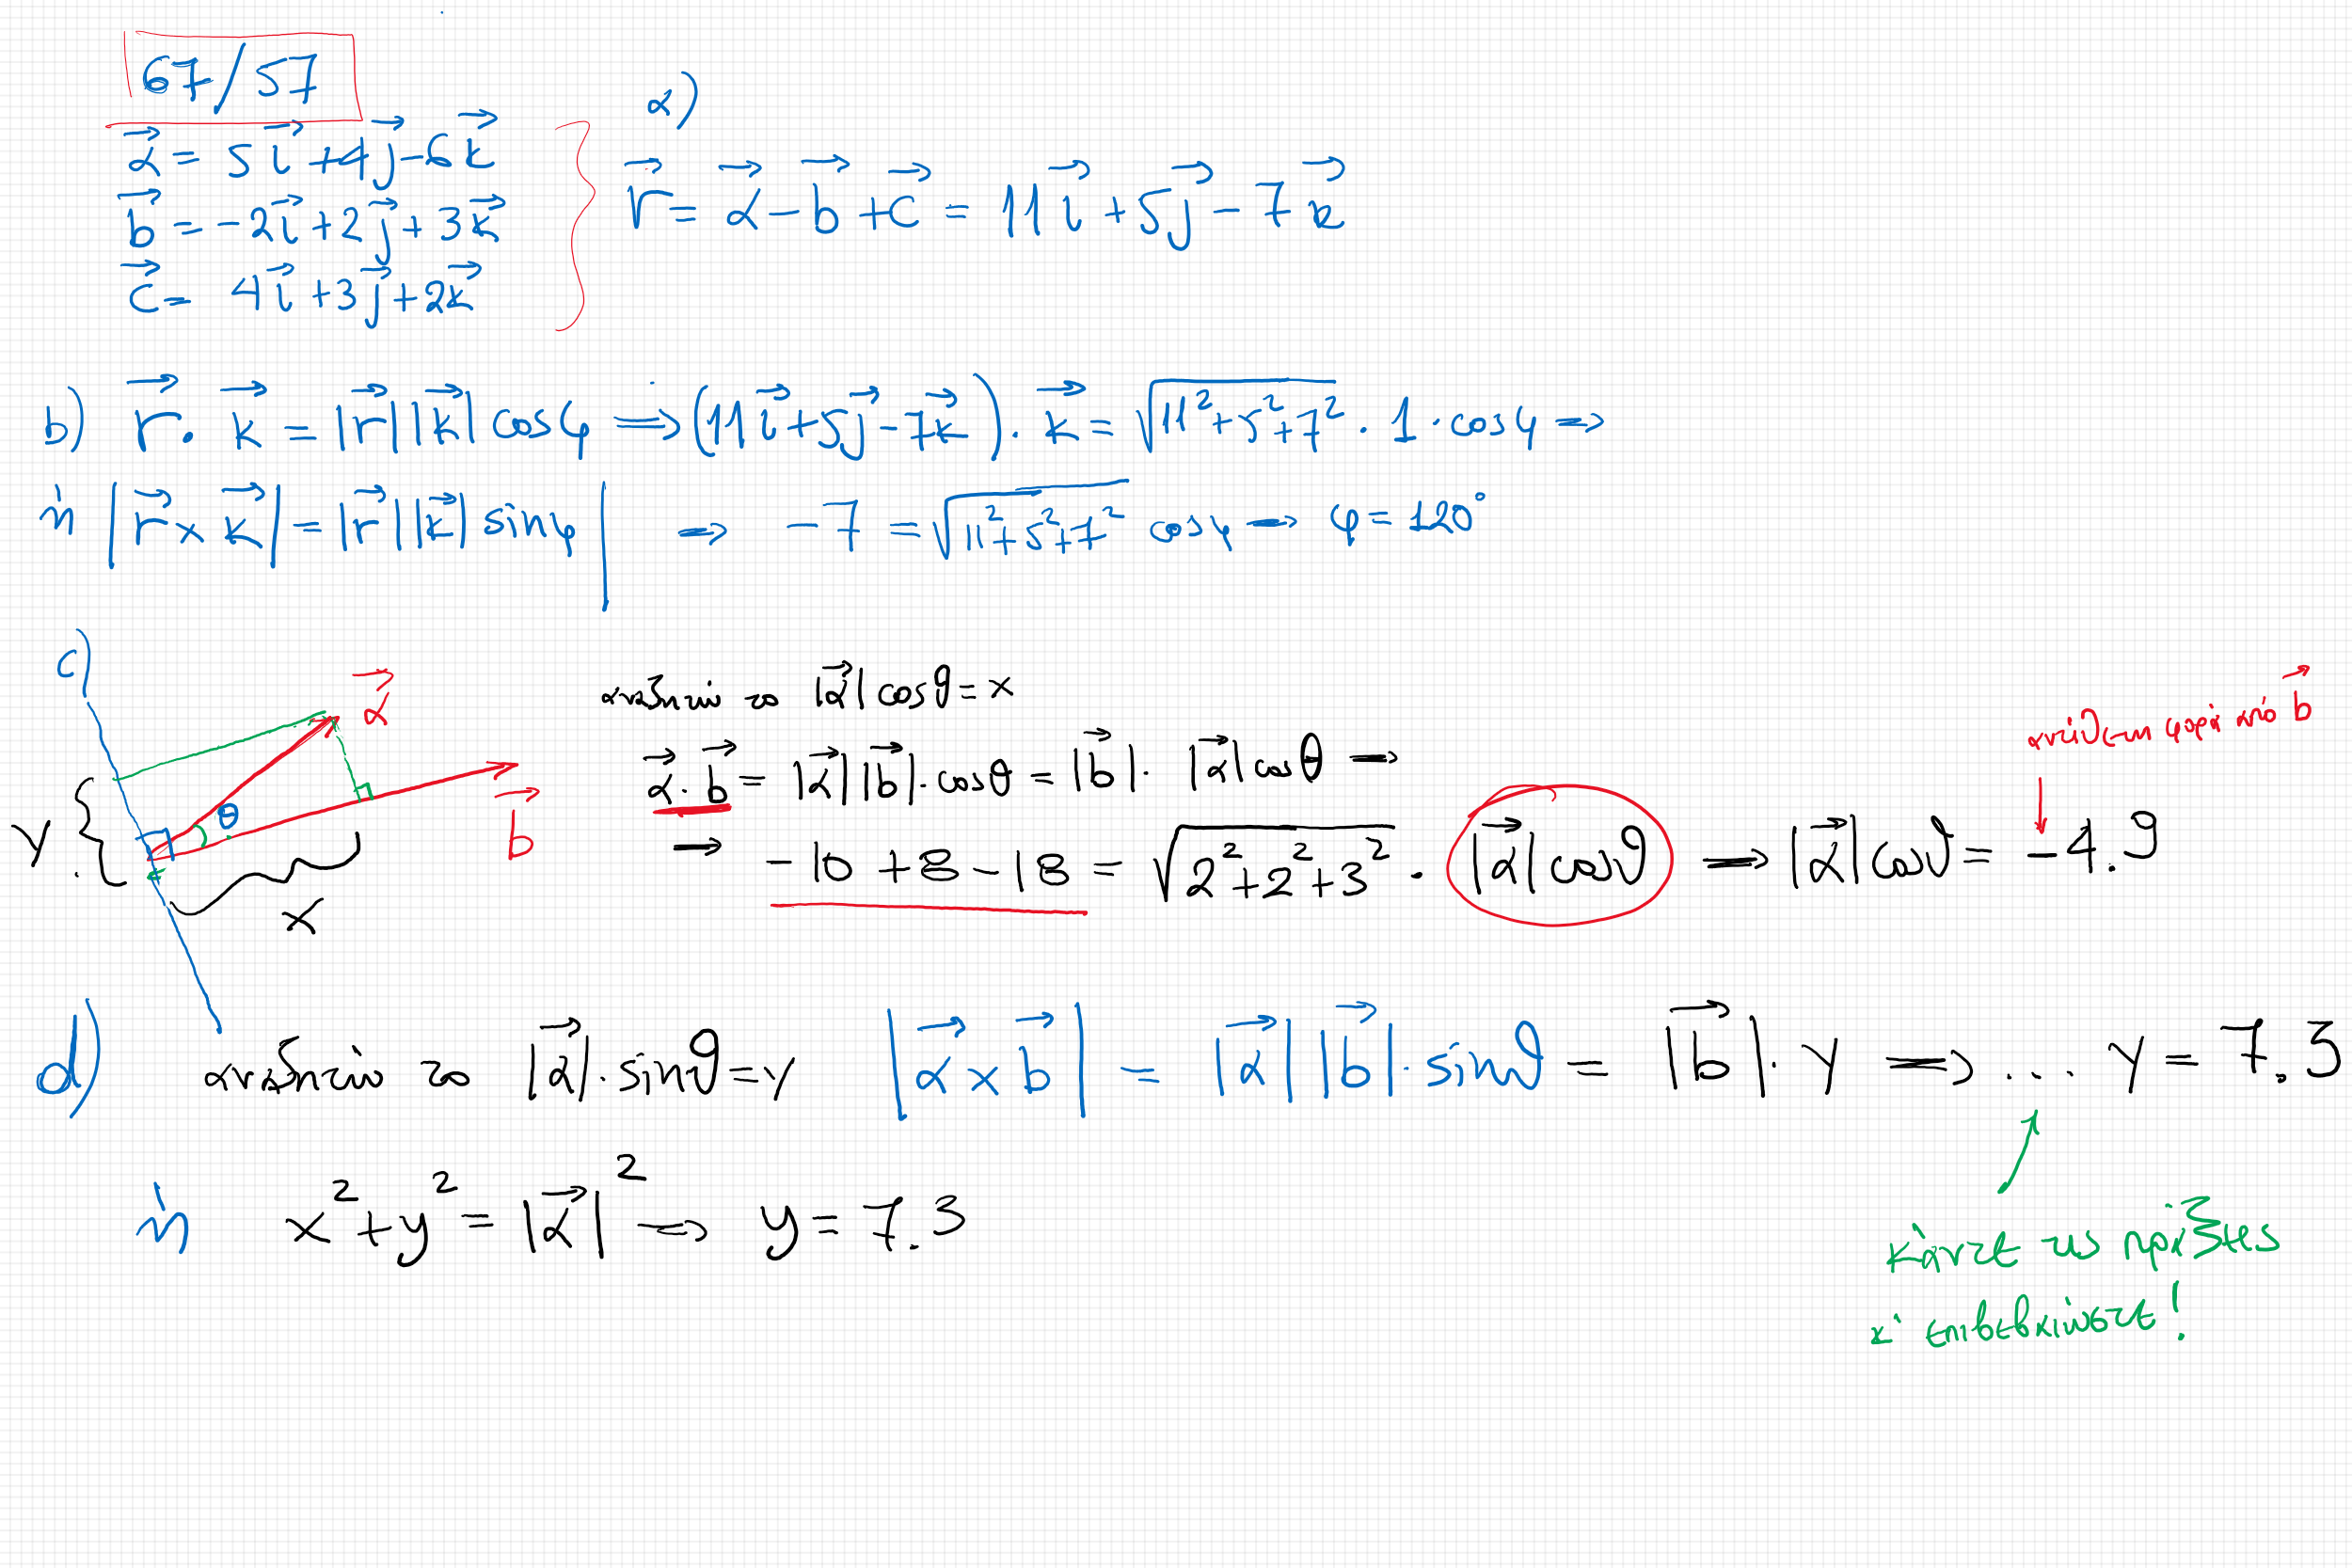 67/57
α)
α⃗ = 5i⃗ + 4j⃗ - 6k⃗
b⃗ = -2i⃗ + 2j⃗ + 3k⃗
c⃗ = 4i⃗ + 3j⃗ + 2k⃗
r⃗ = α⃗ - b⃗ + c⃗ = 11i⃗ + 5j⃗ - 7k⃗
b) r⃗ · k⃗ = |r⃗||k⃗| cosφ ⇒ (11i⃗ + 5j⃗ - 7k⃗) · k⃗ = √(11² + 5² + 7²) · 1 · cosφ ⇒
ή |r⃗ × k⃗| = |r⃗||k⃗| sinφ | ⇒ -7 = √(11² + 5² + 7²) cosφ ⇒ φ = 120°
c)
α⃗
θ
b⃗
Y
X
αναζητώ το |α⃗| cosθ = x
α⃗ · b⃗ = |α⃗||b⃗| · cosθ = |b⃗| · |α⃗| cosθ ⇒
αντίθετη φορά από b⃗
⇒ -10 + 8 - 18 = √(2² + 2² + 3²) · |α⃗| cosθ ⇒ |α⃗| cosθ = -4.9
d) αναζητώ το |α⃗| · sinθ = Y |α⃗ × b⃗| = |α⃗||b⃗| · sinθ = |b⃗| · Y ⇒ ... Y = 7.3
ή x² + y² = |α⃗|² ⇒ y = 7.3
κάντε τις πράξεις
κ' επιβεβαιώστε!